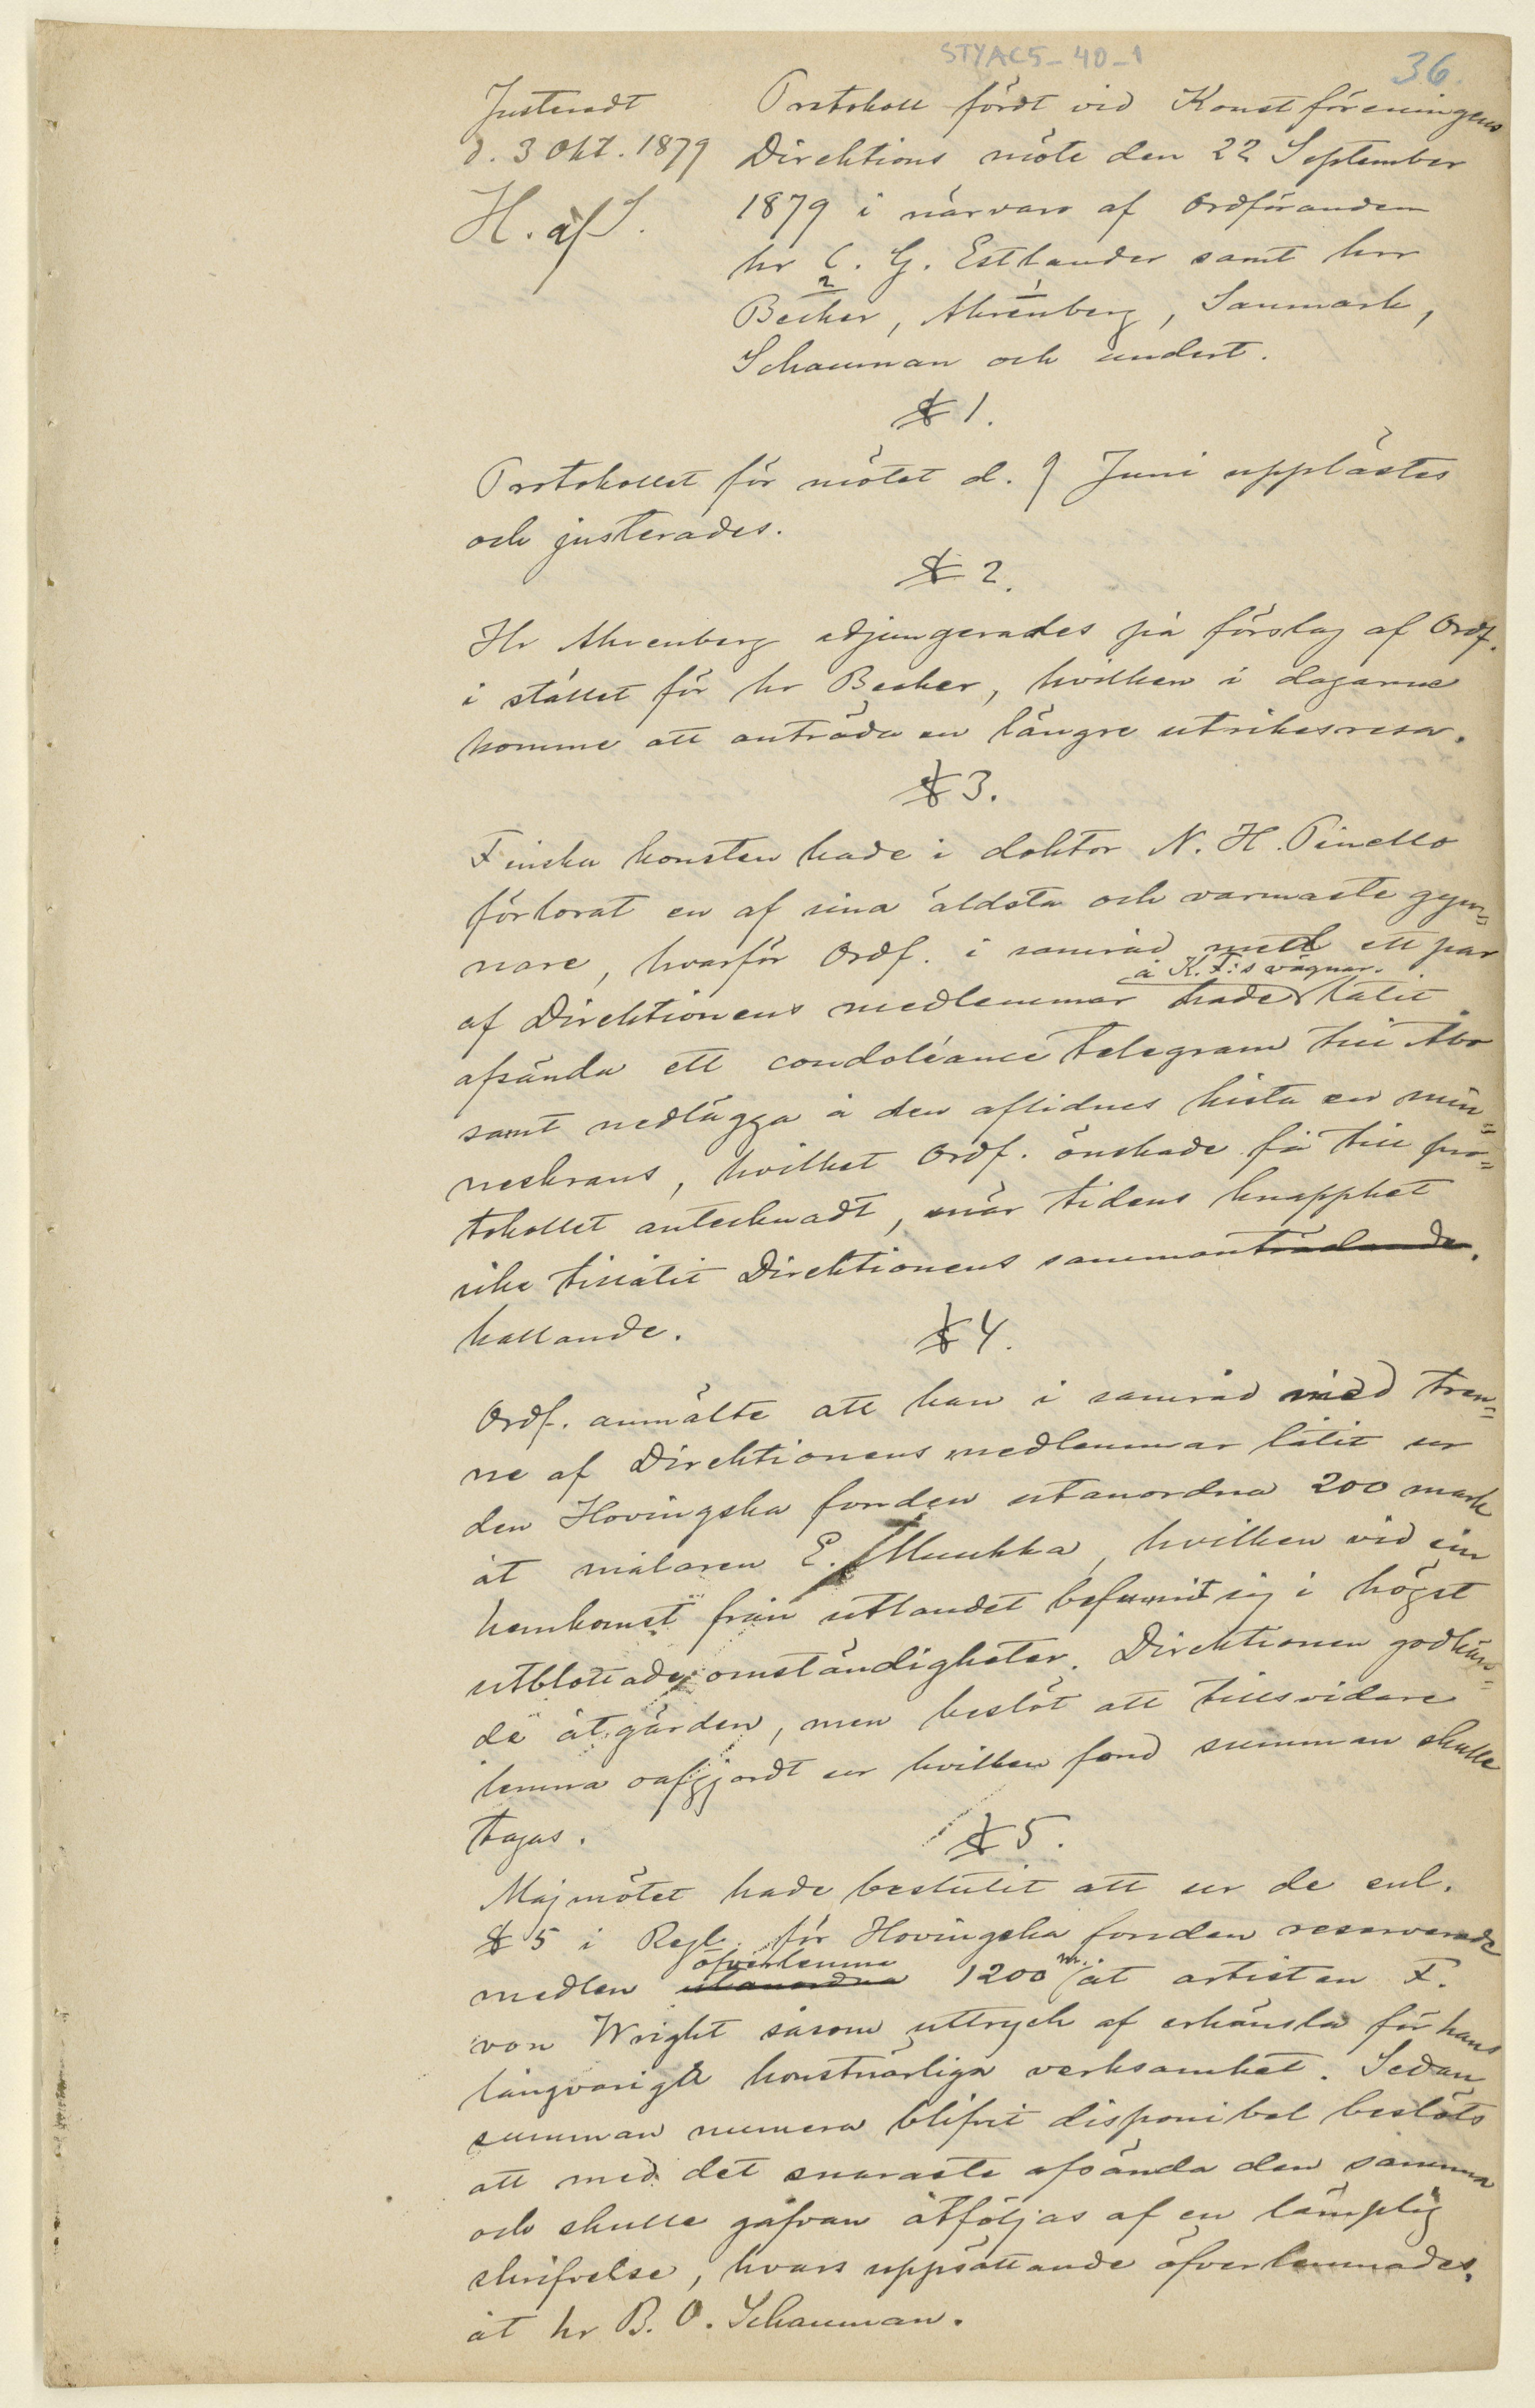 STYAC5-40-1
36.
Justeradt
d. 3 Okt. 1879
H. af S.
Protokoll fördt vid Konstföreningens
Direktions möte den 22 September
1879 i närvaro af Ordföranden
hr C. G. Estlander samt hrr
2 1
Becker, Ahrenberg, Sanmark,
Schauman och undert.
§ 1.
Protokollet för mötet d. 9 Juni upplästes
och justerades.
§ 2.
Hr Ahrenberg adjungerades på förslag af Ordf.
i stället för hr Becker, hvilken i dagarne
komme att anträda en längre utrikesresa.
§ 3.
Finska konsten hade i doktor N. H. Pinello
förlorat en af sina äldsta och varmaste gyn=
nare, hvarför Ordf. i samråd med ett par
å K.F:s vägnar
af Direktionens medlemmar hade låtit
afsända ett condoléance telegram till Åbo
samt nedlägga å den aflidnes kista en min=
neskrans, hvilket Ordf. önskade få till pro=
tokollet antecknadt, när tidens knapphet
icke tillåtit Direktionens sammanträdande.
kallande.
§ 4.
Ordf. anmälte att han i samråd med tren=
ne af Direktionens medlemmar låtit ur
den Hovingska fonden utanordna 200 mark
åt målaren E. Muukka, hvilken vid sin
hemkomst från utlandet befunnit sig i högst
utblottade omständigheter. Direktionen godkän=
de åtgärden, men beslöt att tillsvidare
lemna oafgjordt ur hvilken fond summan skulle
tagas.
§ 5.
Majmötet hade beslutit att ur de enl.
§ 5 i Regl. för Hovingska fonden reserverade
öfverlemna
medlen utanordna 1200 m. åt artisten F.
von Wright såsom uttryck af erkänsla för hans
långvariga konstnärliga verksamhet. Sedan
summan numera blifvit disponibel beslöts
att med det snaraste afsända den samma
och skulle gåfvan åtföljas af en lämplig
skrifvelse, hvars uppsättande öfverlemnades
åt hr B. O. Schauman.